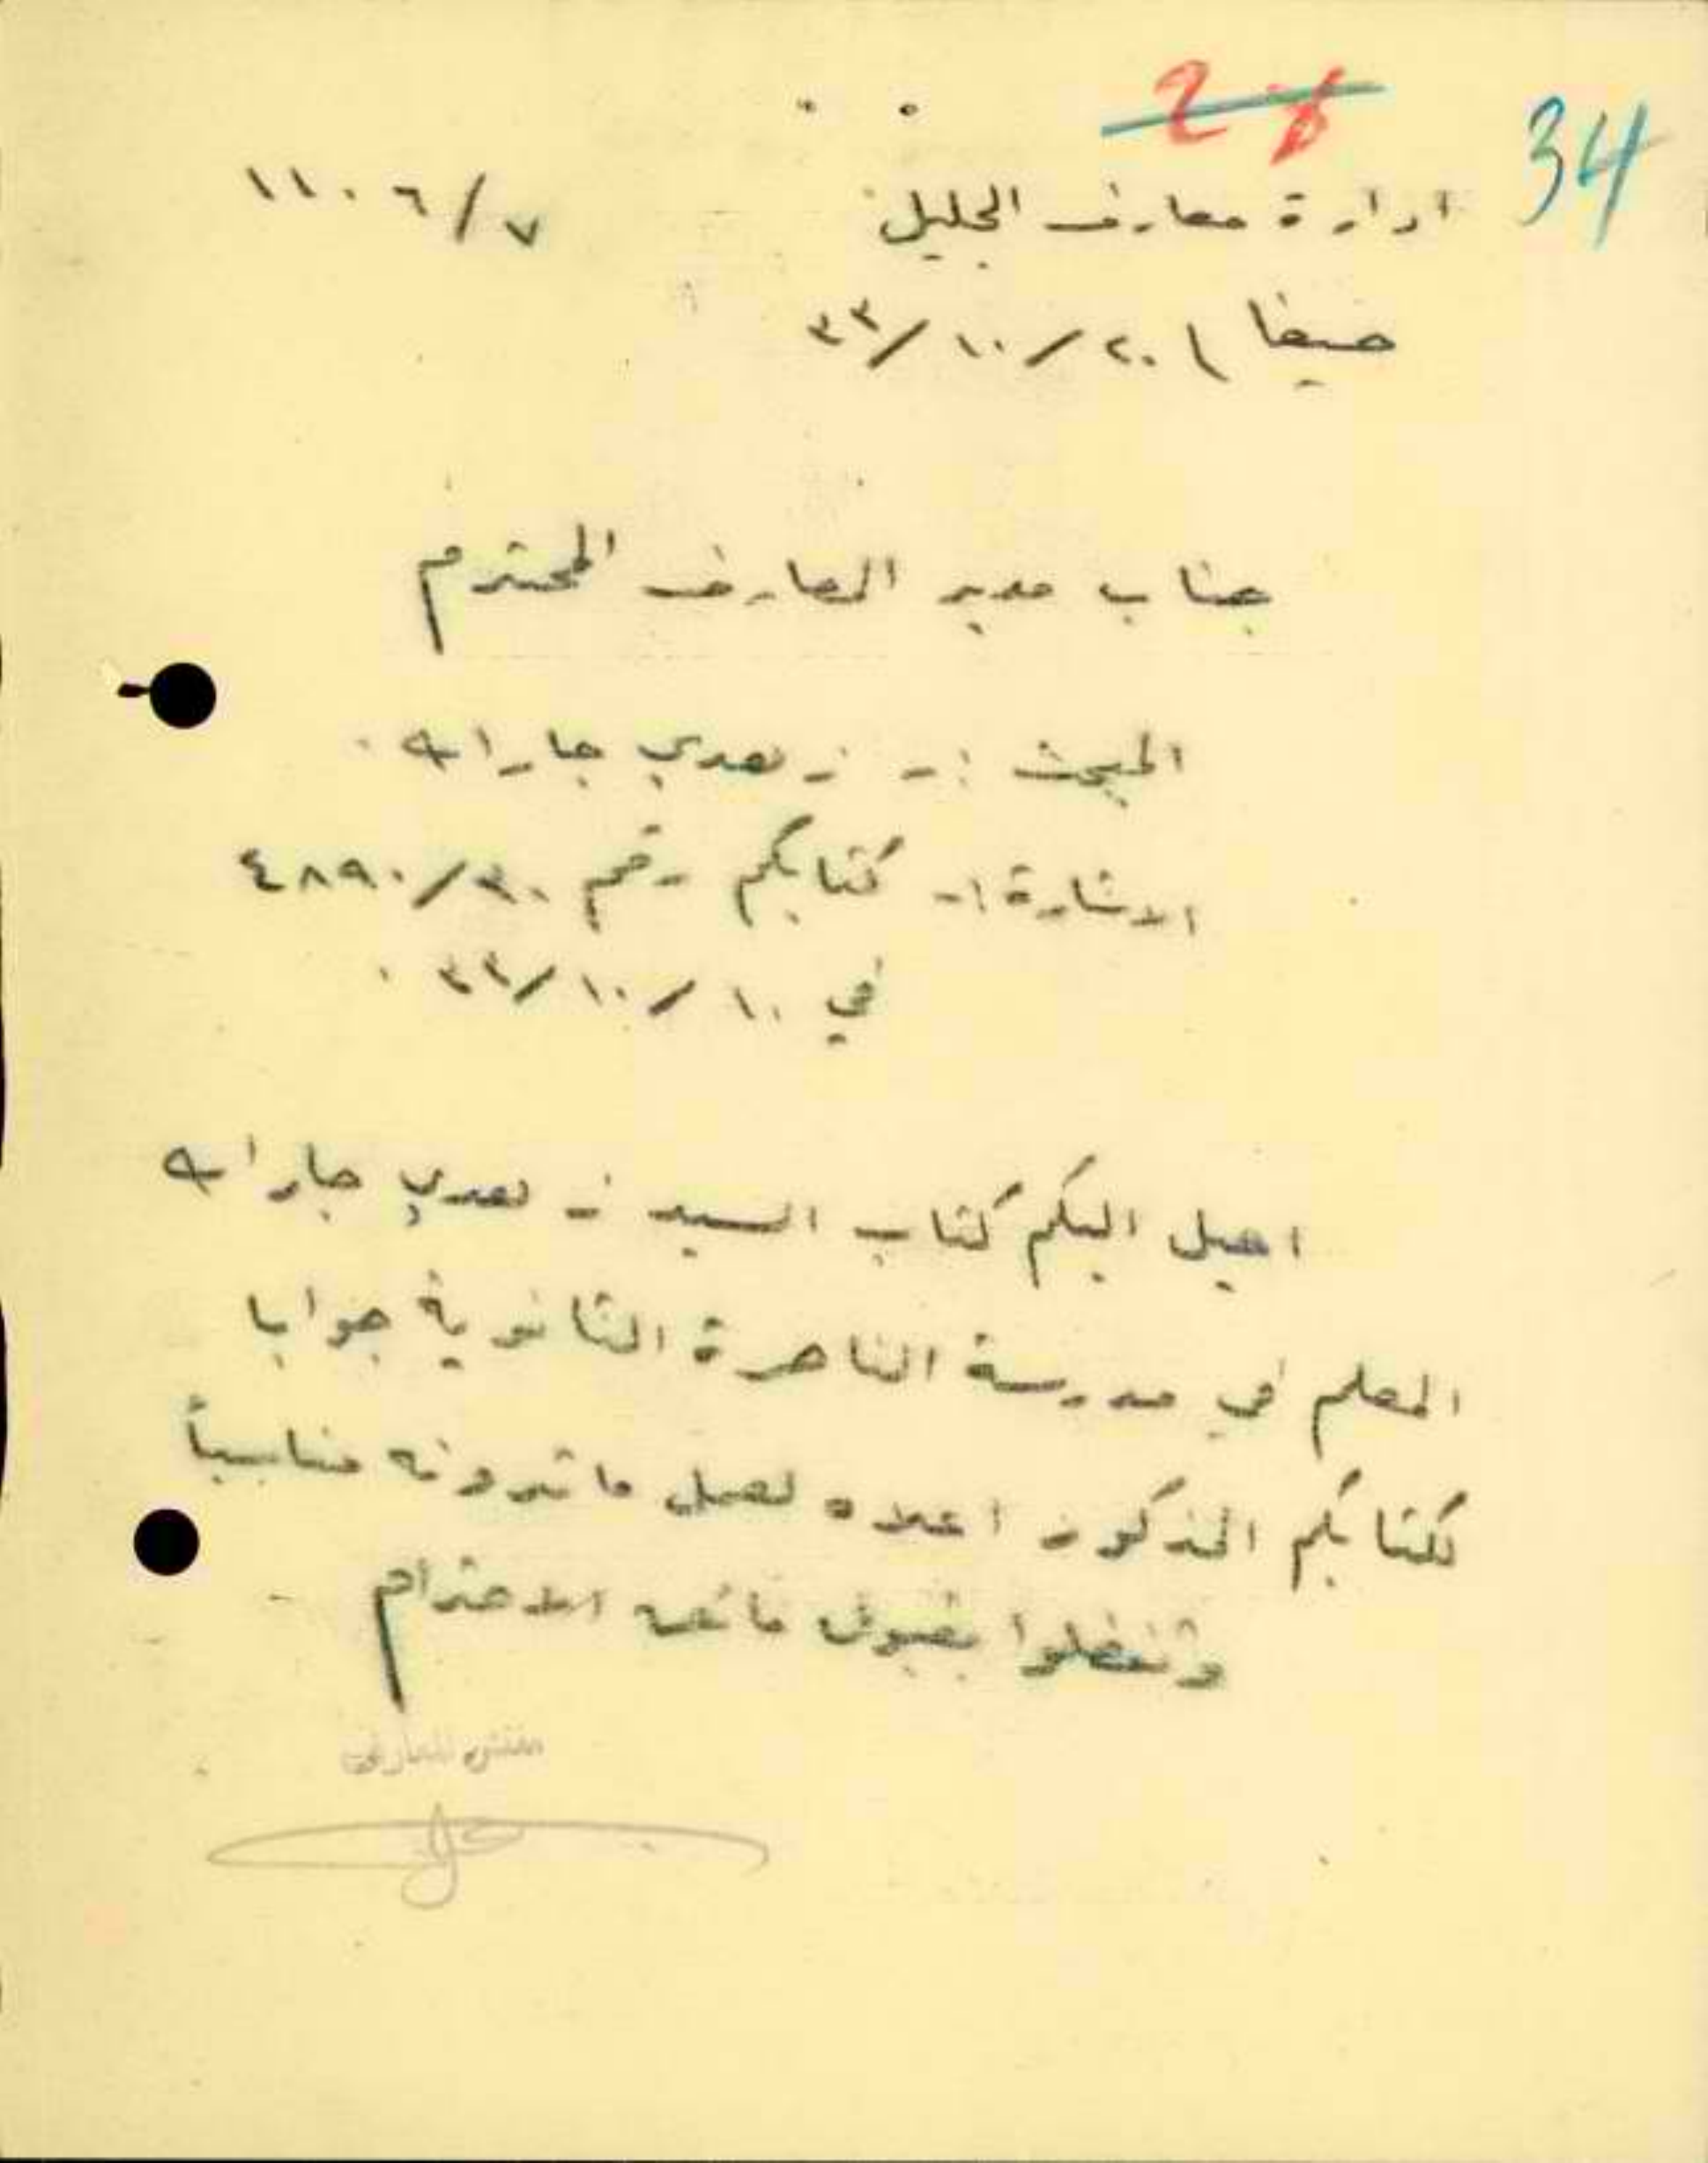 34
28
ادارة معارف الجليل ٧/١١٠٦
حيفا ٢٠/١٠/٣٣
جناب مدير المعارف المحترم
المبحث :- زهدي جارالله .
الاشارة :- كتابكم رقم ٤٨٩٠/٣٠
في ١٠/١٠/٣٣ .
احيل اليكم كتاب السيد زهدي جارالله
المعلم في مدرسة الناصرة الثانوية جوابا
لكتابكم المذكور اعلاه لعمل ماترونه مناسباً
وتفضلوا بقبول فائق الاحترام
مفتش المعارف